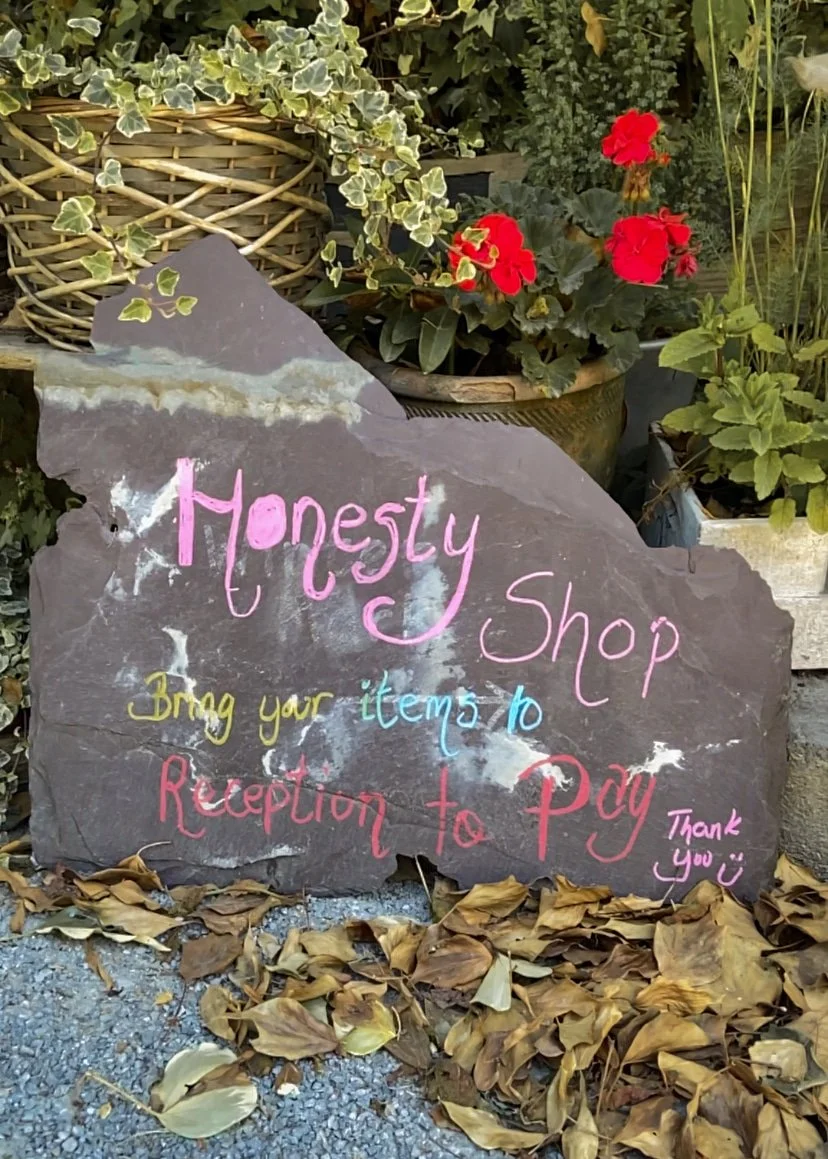 Honesty
Shop
Bring your items to
Reception to Pay
Thank
you